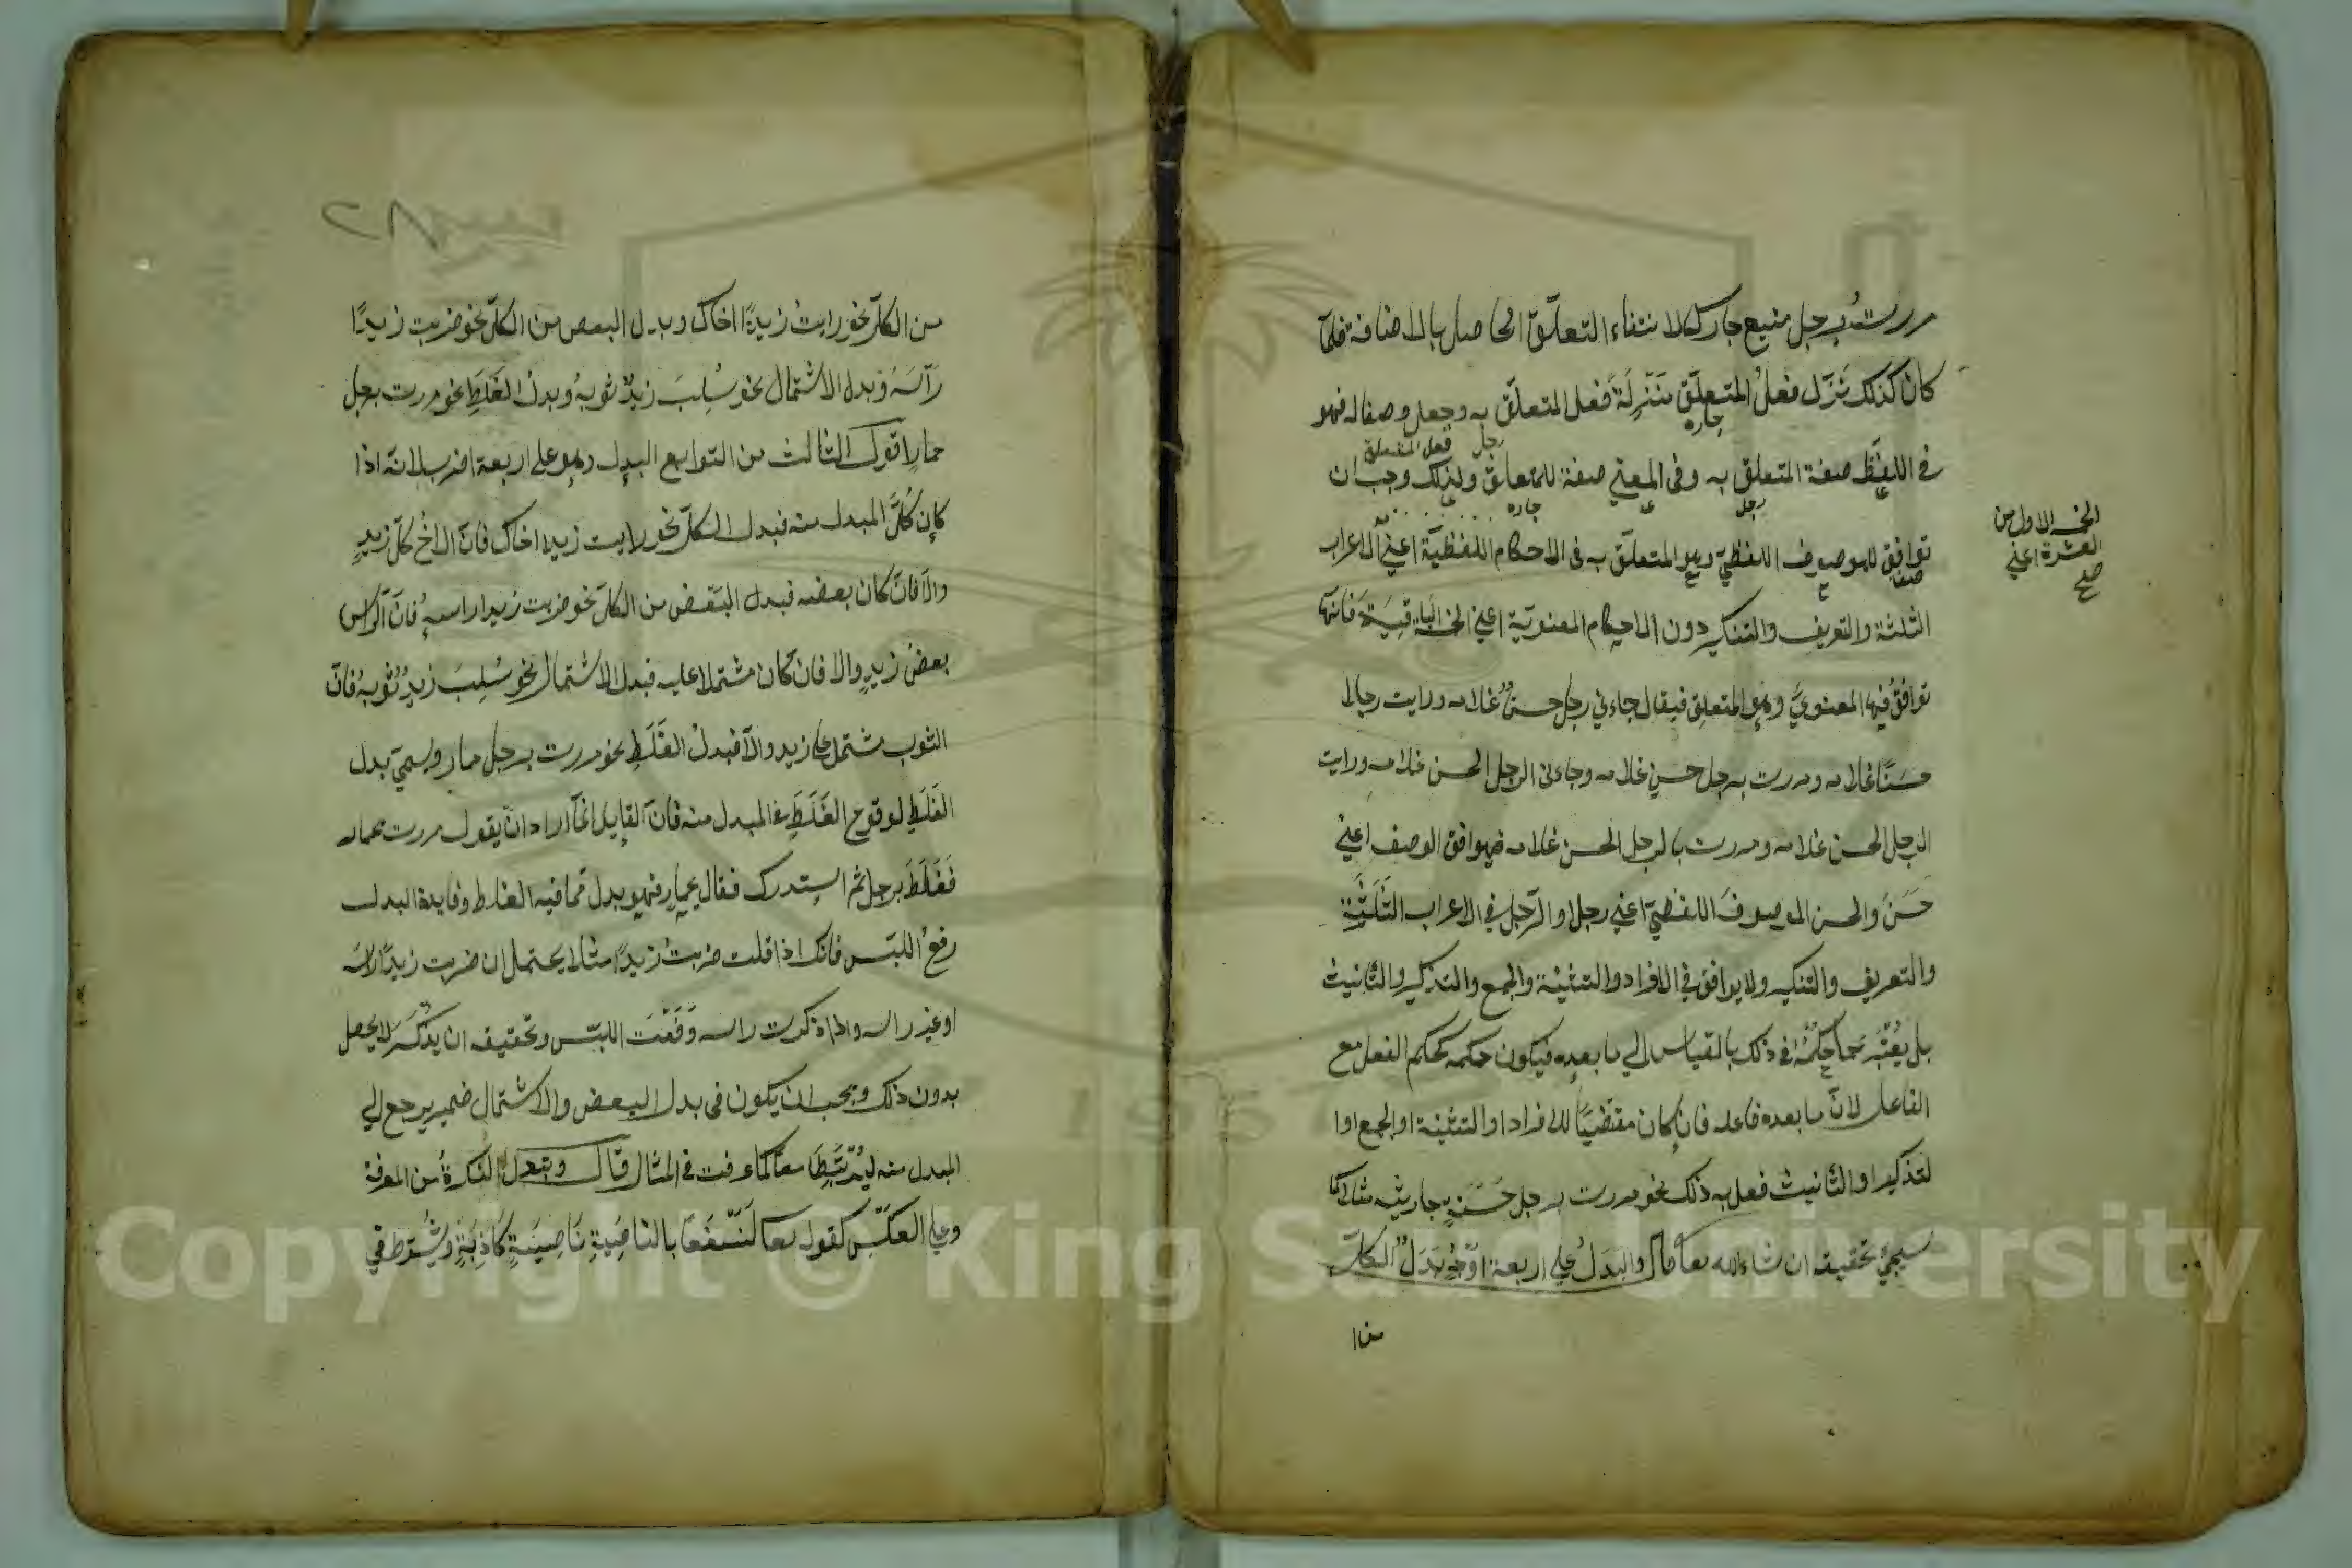 مررت برجل منيع جارك لانتفاء التعلّق الحاصل بالاضافة فلمّا
كان كذلك نزّل فعل المتعلّق منزلة فعل المتعلّق به وجعل وصفا له فهو
جاره
رجل فعل المتعلق
في اللفظ صفة المتعلق به وفى المعني صفة للمتعلق ولذلك وجب ان
رجل جاره
توافق الموصوف اللفظيّ وهو المتعلّق به فى الاحكام اللفظيّة اعني الاعراب
صفة
الخمس الاول من
العشرة اعني
صح
الثلثة والتعريف والتنكير دون الاحكام المعنويّة اعني الخمس الباقية فانّها
توافق فيها المعنويّ وهو المتعلق فيقال جاءني رجل حسنٌ غلامه ورايت رجلا
حسنًا غلامه ومررت برجل حسن غلامه وجاءنى الرجل الحسن غلامه ورايت
الرجل الحسن غلامه ومررت بالرجل الحسن غلامه فيوافق الوصف اعني
حَسَن والحسن الموصوف اللفظيّ اعني رجلا والرّجل في الاعراب الثلثة
والتعريف والتنكير ولا يوافق في الافراد والتثنية والجمع والتذكير والتأنيث
بل يعتبر حكمه في ذلك بالقياس الي ما بعده فيكون حكمه كحكم الفعل مع
الفاعل لانّ ما بعده فاعله فان كان مقتضيًا للافراد او التثنية او الجمع او ا
لتذكير او التأنيث فعل به ذلك نحو مررت برجل حَسَنٍ جاريته مثلا كما
سيجئ تحقيقه ان شاء الله تعا قال والبدل علي اربعة اوجهٍ بَدَلُ الكلّ
من ا
٢٨
من الكلّ نحو رايتُ زيدًا اخاك وبدل البعض من الكلّ نحو ضربت زيدًا
رأسَه وبدل الاشتمال نحو سُلِبَ زيدٌ ثوبُه وبدل الغَلَطِ نحو مررت برجل
حمارٍ اقول الثالث من التوابع البدل وهو علي اربعة اضرب لانه اذا
كان كُلَّ المبدل منه فبدل الكلّ نحو رايت زيدا اخاك فانّ الاخ كلّ زيدٍ
والّا فان كان بعضه فبدل البَعْض من الكلّ نحو ضربت زيدا راسه فانّ الرّاس
بعضُ زيدٍ والّا فان كان مشتملا عليه فبدل الاشتمال نحو سُلِبَ زيدٌ ثوبُه فانّ
الثوب مشتمل علي زيد والّا فبدلُ الغَلَطِ نحو مررت برجل حمار ويسمّى بدل
الغَلَطِ لوقوع الغَلَطِ في المبدل منه فانّ القايل انّما اراد ان يقول مررت بحمار
فَغَلَطَ برجل ثم استدرك فقال بحمارٍ فهو بدل ممّا فيه الغلط وفايدة البدل
رفعُ اللبس فانك اذا قلت ضربتُ زيدًا مثلا يحتمل ان ضربت زيدًا راسَه
او غير راسه واذا ذكرت راسه رَفَعْتَ اللبس وتحقيقه ان يذكر لا يحصل
بدون ذلك ويجب ان يكون فى بدل البعض والاشتمال ضمير يرجع الي
المبدل منه ليرتبطا معًا كما عرفت في المثال قال وتبدل النكرةُ من المعرفة
وعلي العكس كقوله تعا لَنَسْفَعًا بالناصِيَةِ نَاصِيَةٍ كَاذِبَةٍ ويُشترط في